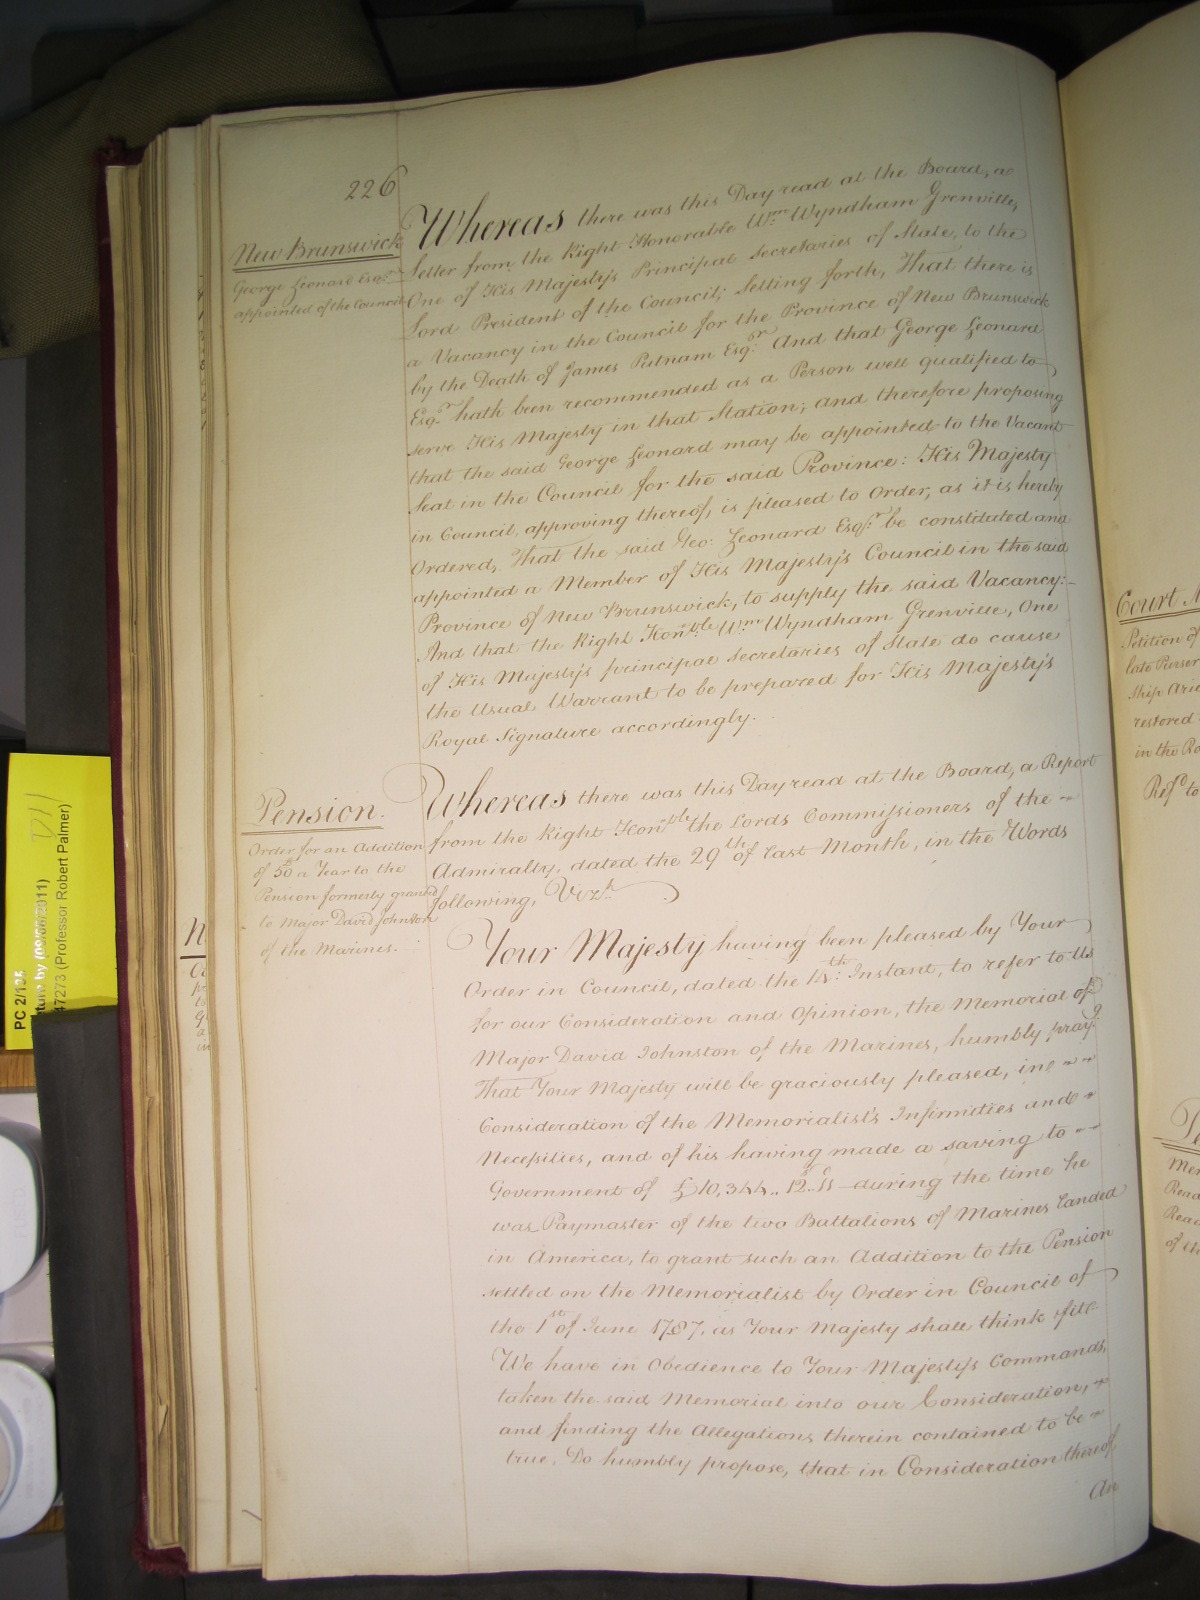 226
New Brunswick
George Leonard Esqr
appointed of the Council
Whereas there was this Day read at the Board, a
Letter from the Right Honorable Wm Wyndham Grenville,
One of His Majesty's Principal Secretaries of State, to the
Lord President of the Council; Setting forth, That there is
a Vacancy in the Council for the Province of New Brunswick
by the Death of James Putnam Esqr. And that George Leonard
Esqr hath been recommended as a Person well qualified to
serve His Majesty in that Station; and therefore proposing
that the said George Leonard may be appointed to the Vacant
Seat in the Council for the said Province: His Majesty
in Council, approving thereof, is pleased to Order, as it is hereby
Ordered, That the said Geo: Leonard Esqr. be constituted and
appointed a Member of His Majesty's Council in the said
Province of New Brunswick, to supply the said Vacancy:-
And that the Right Honble Wm Wyndham Grenville, One
of His Majesty's principal Secretaries of State do cause
the Usual Warrant to be prepared for His Majesty's
Royal Signature accordingly.
Pension.
Order for an Addition
of 50£ a Year to the
Pension formerly granted
to Major David Johnston
of the Marines.
Whereas there was this Day read at the Board, a Report
from the Right Honble the Lords Commissioners of the
Admiralty, dated the 29th of last Month, in the Words
following, Vizt.
Your Majesty having been pleased by Your
Order in Council, dated the 14th: Instant, to refer to Us
for our Consideration and Opinion, the Memorial of
Major David Johnston of the Marines, humbly prayg
That Your Majesty will be graciously pleased, in
Consideration of the Memorialist's Infirmities and
Necessities, and of his having made a saving to
Government of £10,344.. 12.. 11 during the time he
was Paymaster of the two Battalions of Marines landed
in America, to grant such an Addition to the Pension
settled on the Memorialist by Order in Council of
the 1st of June 1787, as Your Majesty shall think fit
We have in Obedience to Your Majesty's Commands,
taken the said Memorial into our Consideration,
and finding the Allegations therein contained to be
true, Do humbly propose, that in Consideration thereof
An
PC 2/135
47273 (Professor Robert Palmer)
Court
Petition of
late Purser
Ship
restored
in the
Refd to